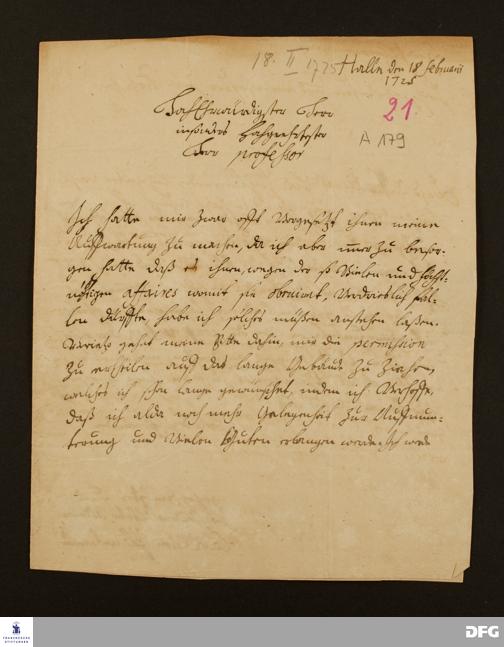 18. II 1725 Halle den 18 Februarii
1725
Hochehrwürdigster Herr
insonders Hochgeehrtester
Herr Professor
21.
A 179
Ich hatte mir zwar offt Vorgesetzt ihnen meine
Auffwartung zu machen, da ich aber immer zu besor-
gen hatte daß es ihnen, wegen der so Vielen und hochst-
nöthigen affaires womit sie obruirt, Verdrieslich fal-
len dürffte, habe ich solches müßen anstehen laßen.
gehet meine Bitte dahin, mir die permission
zu ertheilen auff das lange Gebäude zu ziehen,
welches ich schon lange gewünschet, indem ich Verhoffe,
daß ich alda noch mehr Gelegenheit zur Auffmun-
terung und Vielen Guten erlangen werde. Ich werde
FRANCKESCHE
STIFTUNGEN
DFG